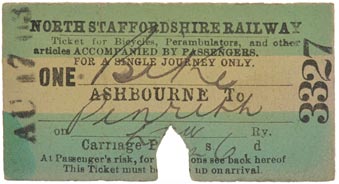 NORTH STAFFORDSHIRE RAILWAY
Ticket for Bicycles, Perambulators, and other
articles ACCOMPANIED BY PASSENGERS.
FOR A SINGLE JOURNEY ONLY.
ONE Bike
ASHBOURNE To
Penrith
on Ry.
Carriage P 6 s d
At Passenger's risk, for ons see back hereof
This Ticket must b up on arrival.
3327